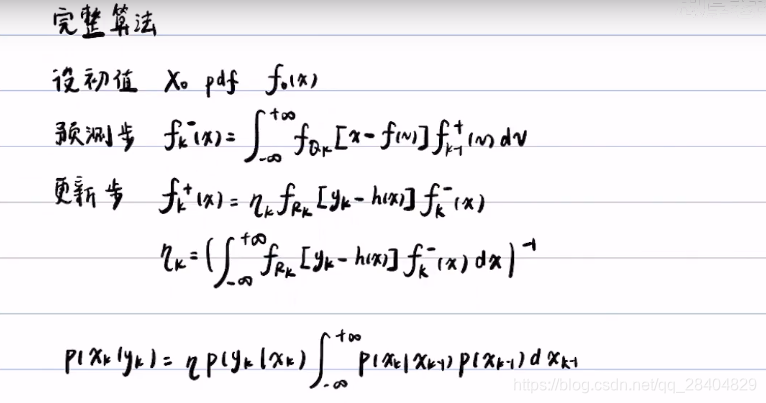 完整算法
设初值 X₀ pdf f₀(x)
预测步 fₖ⁻(x) = ∫_{-∞}^{+∞} f_{Qₖ}[x - f(v)] f_{k-1}⁺(v) dv
更新步 fₖ⁺(x) = ηₖ f_{Rₖ}[yₖ - h(x)] fₖ⁻(x)
ηₖ = (∫_{-∞}^{+∞} f_{Rₖ}[yₖ - h(x)] fₖ⁻(x) dx)⁻¹
p(xₖ|yₖ) = η p(yₖ|xₖ) ∫_{-∞}^{+∞} p(xₖ|xₖ₋₁) p(xₖ₋₁) d xₖ₋₁
https://blog.csdn.net/qq_28404829